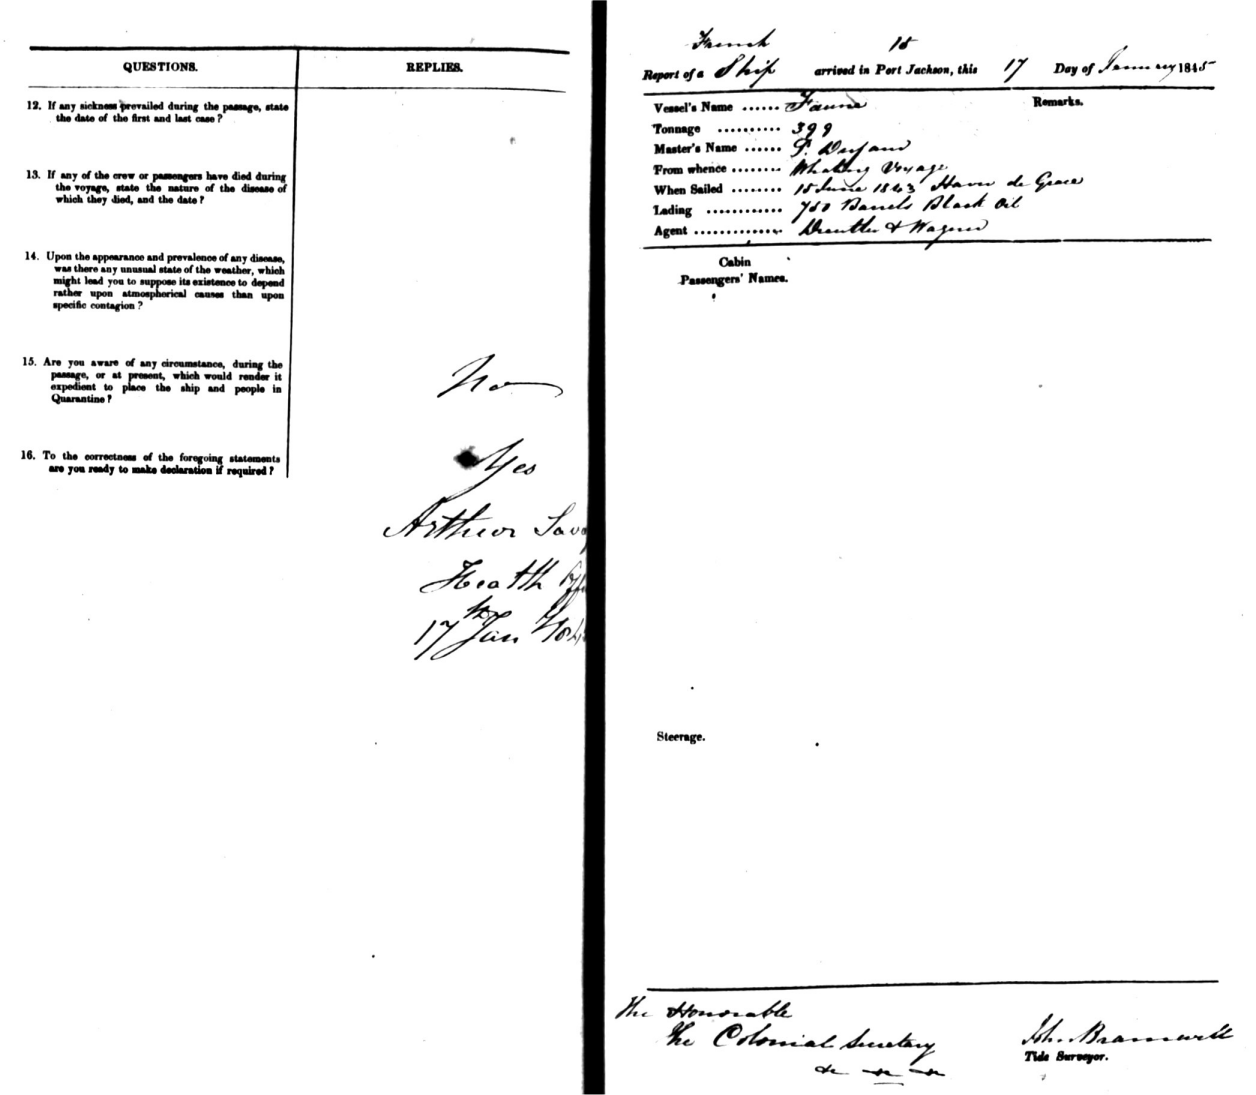 QUESTIONS.
REPLIES.
12. If any sickness prevailed during the passage, state
the date of the first and last case?
13. If any of the crew or passengers have died during
the voyage, state the nature of the disease of
which they died, and the date?
14. Upon the appearance and prevalence of any disease,
was there any unusual state of the weather, which
might lead you to suppose its existence to depend
rather upon atmospherical causes than upon
specific contagion?
15. Are you aware of any circumstance, during the
passage, or at present, which would render it
expedient to place the ship and people in
Quarantine?
No
16. To the correctness of the foregoing statements
are you ready to make declaration if required?
Yes
Arthur Sav
Heath
17th Jan
French 15
Report of a Ship arrived in Port Jackson, this 17 Day of January 1845
Vessel's Name ...... Faune
Remarks.
Tonnage .......... 399
Master's Name ......
From whence ........ Whaling Voyage
When Sailed ........ 15 June 1843 Havre de Grace
Lading ............ 750 Barrels Black Oil
Agent ............. & Wagner
Cabin
Passengers' Names.
Steerage.
The Honorable
The Colonial Secretary
John Bramwell
Tide Surveyor.